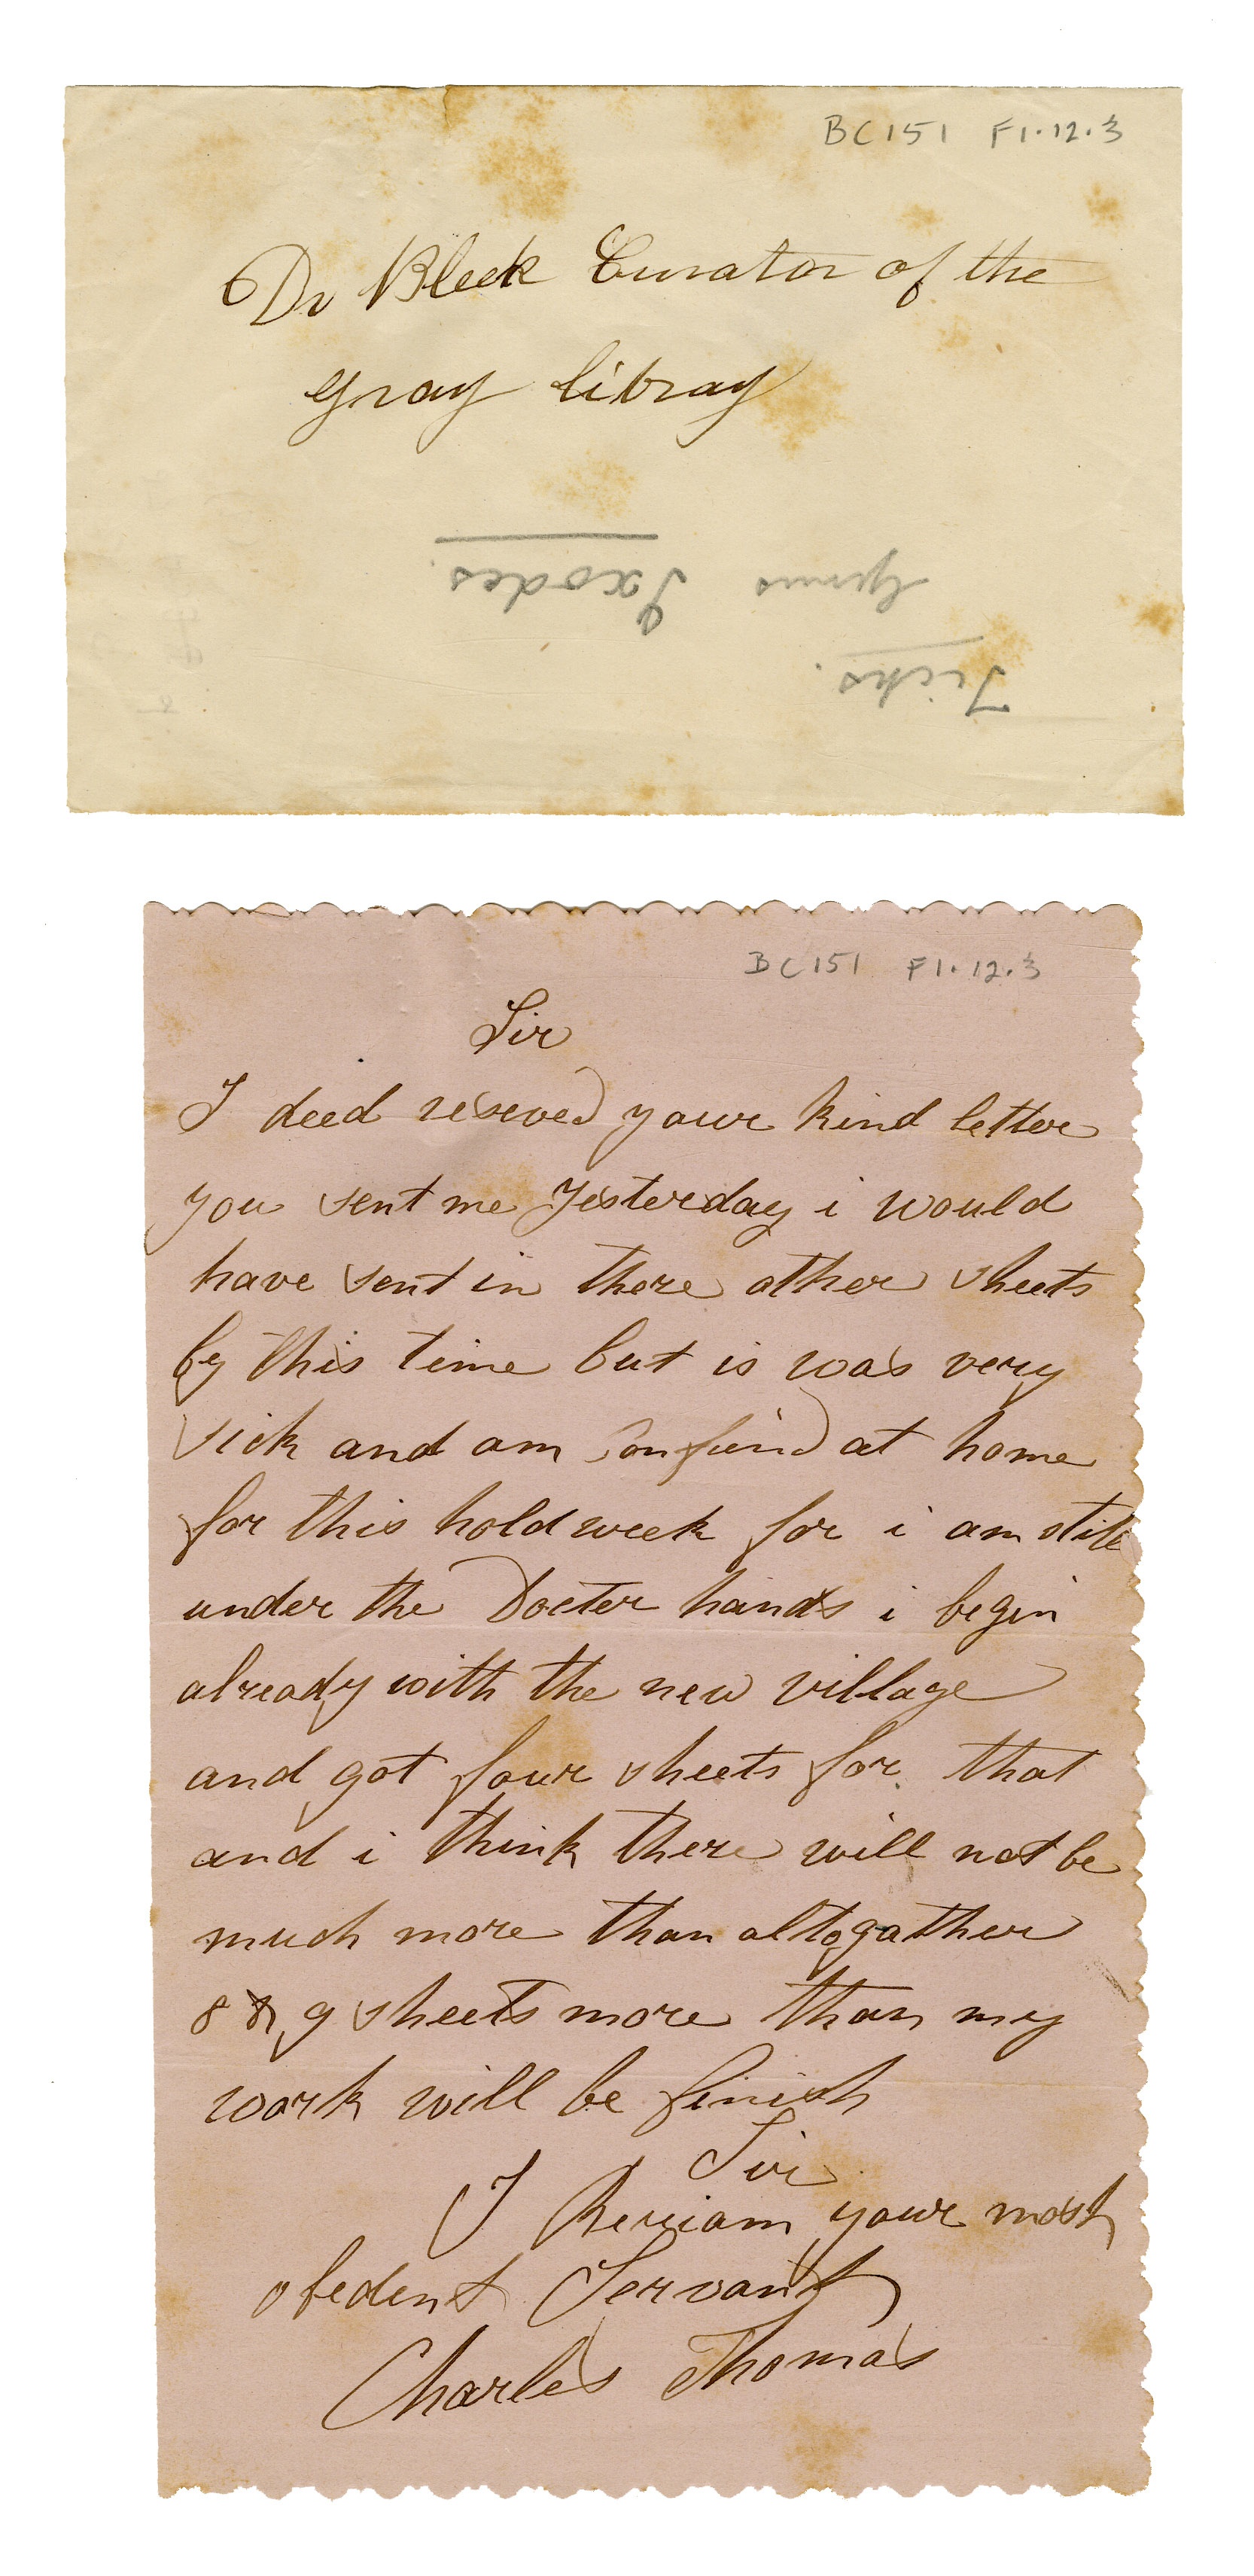 BC151 F1.12.3
Dr Bleek Curator of the
gray libray
Ticks.
Genus Ixodes.
BC151 F1.12.3
Sir
I deed reseved your kind letter
you sent me Yesterday i would
have sent in there other sheets
by this time but is was very
sick and am Confiend at home
for this hold week for i am still
under the Docter hands i begin
already with the new village
and got four sheets for that
and i think there will not be
much more than altogather
8 & 9 sheets more than my
work will be finish
Sir
I Remiam your most
obedent Servant
Charles Thomas